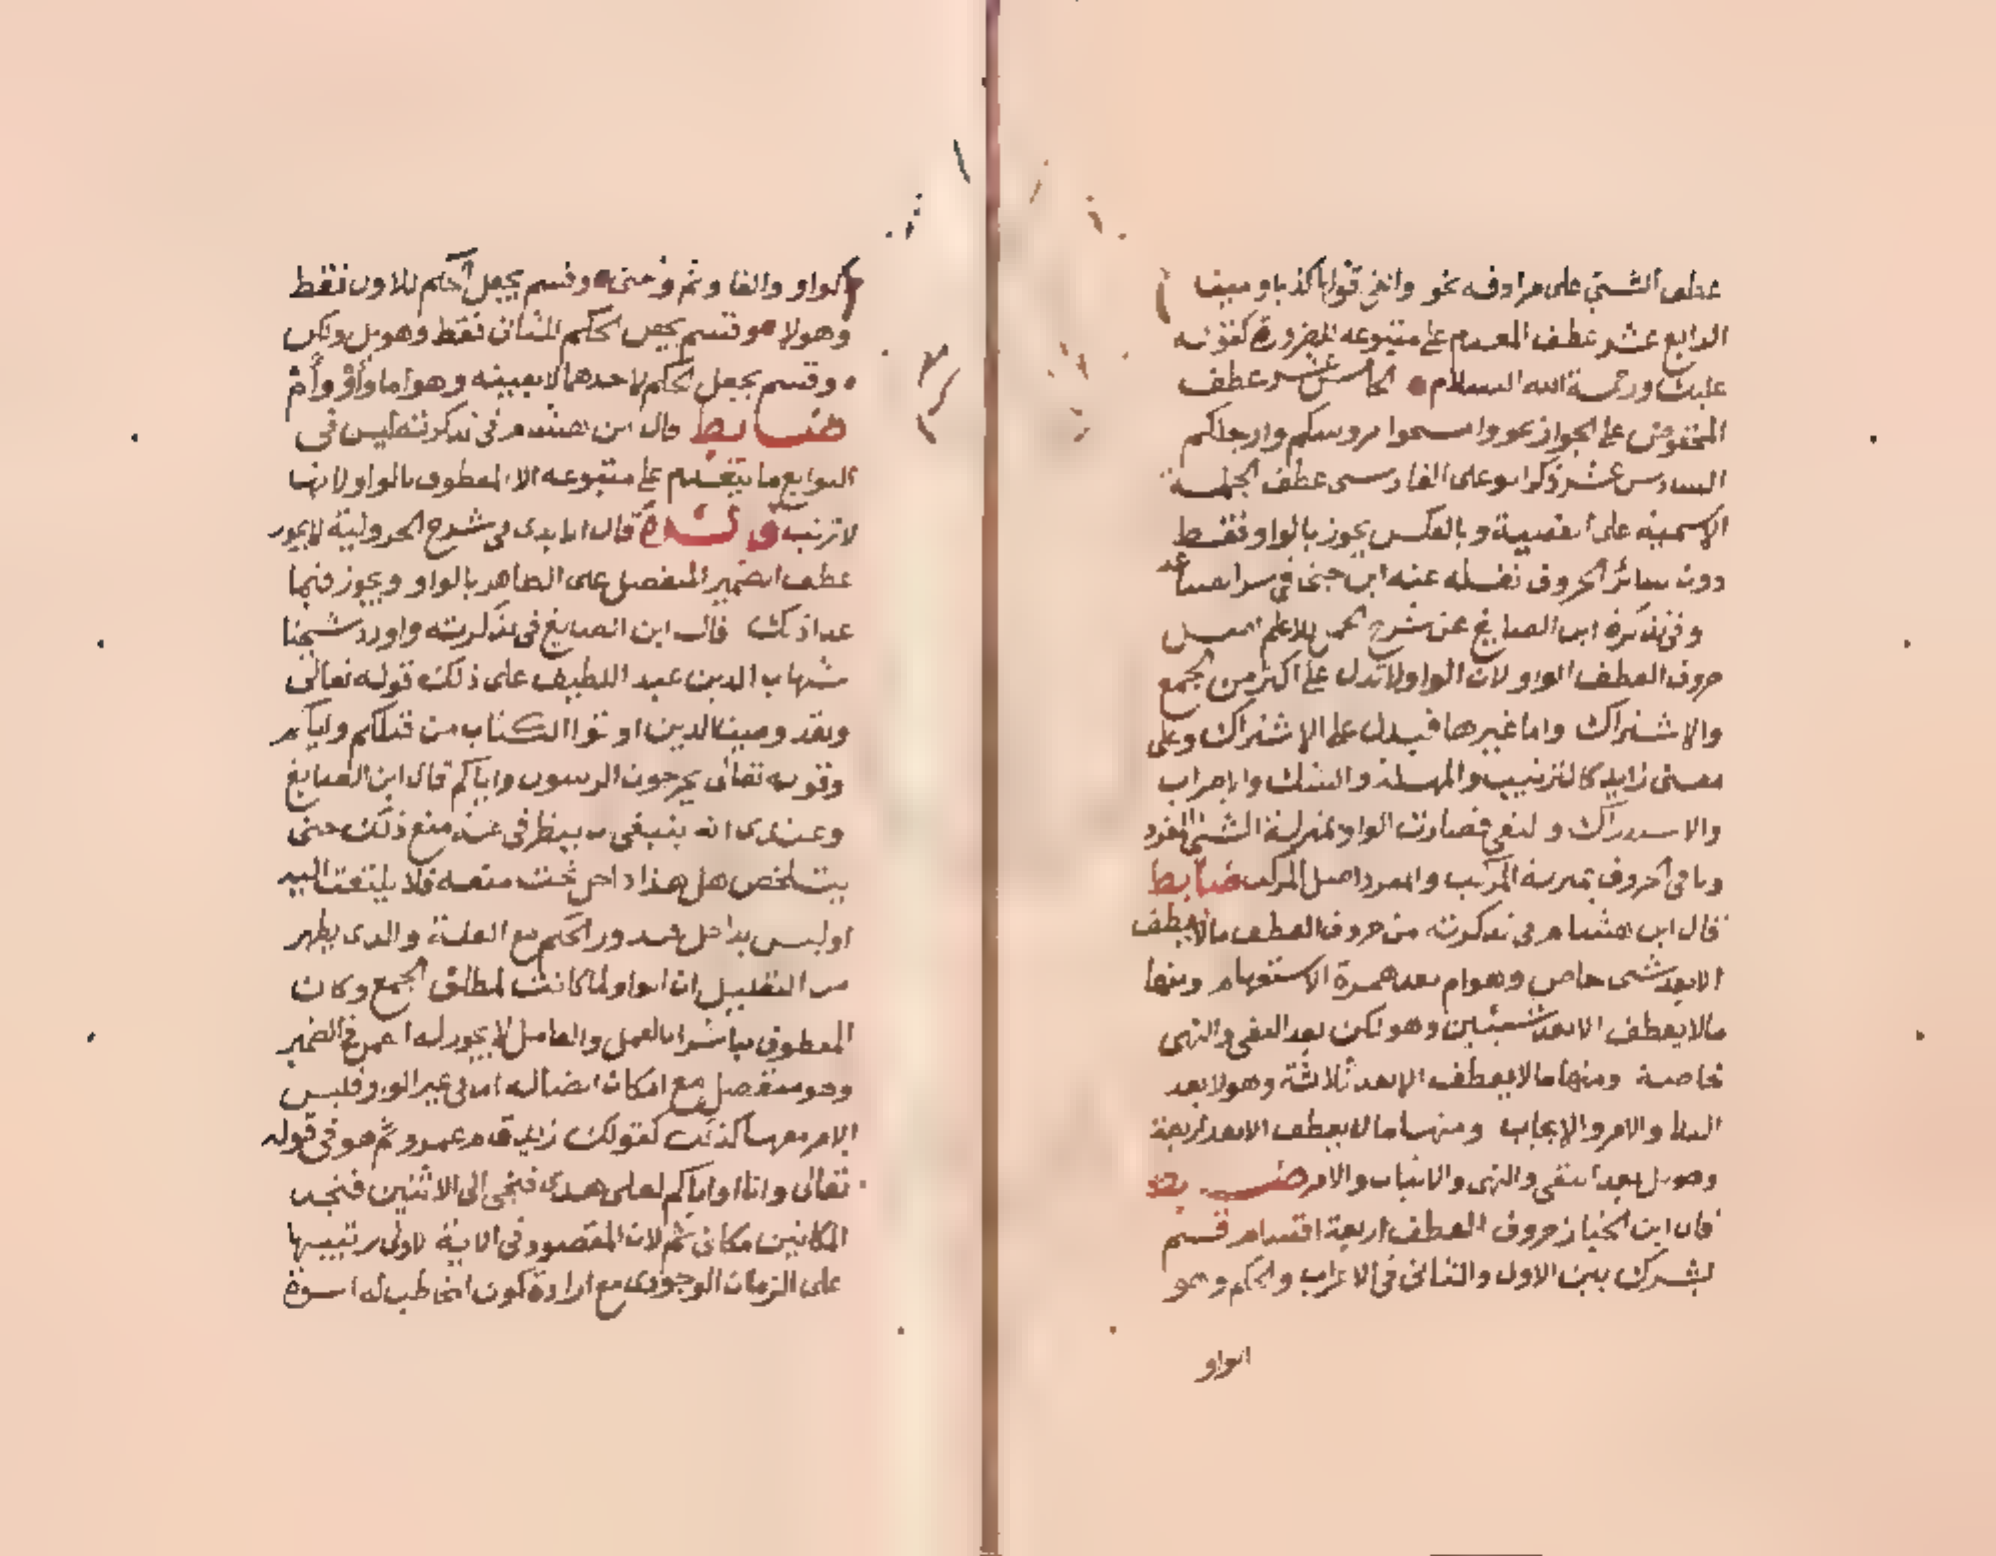 عطف الشئ على مرادفه نحو والفى قولها كذبا ومينا
الرابع عشر عطف المقدم على متبوعه للضرورة كقوله
عليك ورحمة الله السلام الخامس عشر عطف
المخفوض على الجوار نحو وامسحوا بروسكم وارجلكم
السادس عشر ذكر ابو على الفارسى عطف الجملة
الاسمية على الفعلية وبالعكس يجوز بالواو فقط
دون سائر الحروف نقله عنه ابن جنى فى سر الصناعة
وفى تذكرة ابن الصايغ عن شرح الجمل للاعلم اصل
حروف العطف الواو لان الواو لا تدل على اكثر من الجمع
والاشتراك واما غيرها فيدل على الاشتراك وعلى
معنى زايد كالترتيب والمهلة والشك والاضراب
والاستدراك والنفى فصارت الواو بمنزلة الشئ المفرد
وباقى الحروف بمنزلة المركب والمفرد اصل المركب ضابط
قال ابن هشام فى تذكرته من حروف العطف ما لا يعطف
الا بعد شى خاص وهو ام بعد همزة الاستفهام ومنها
مالا يعطف الا بعد شيئين وهو لكن بعد النفى والنهى
خاصة ومنها ما لا يعطف الا بعد ثلاثة وهو لا بعد
الندا والامر والايجاب ومنها ما لا يعطف الا بعد اربعة
وهو بل بعد النفى والنهى والاثبات والامر ضابط
قال ابن الخباز حروف العطف اربعة اقسام قسم
يشرك بين الاول والثانى فى الاعراب والحكم وهو
الواو
الواو والفا وثم وحتى وقسم يجعل الحكم للاول فقط
وهو لا وقسم يجعل الحكم للثانى فقط وهو بل ولكن
وقسم يجعل الحكم لاحدهما لا بعينه وهو اما وأو وأم
ضابط قال ابن هشام فى تذكرته ليس فى
التوابع ما يتقدم على متبوعه الا المعطوف بالواو لانها
لا ترتب فائدة قال الابدى فى شرح الجزولية لا يجوز
عطف الضمير المنفصل على الظاهر بالواو ويجوز فيما
عدا ذلك قال ابن الصايغ فى تذكرته واورد شيخنا
شهاب الدين عبد اللطيف على ذلك قوله تعالى
ولقد وصينا الذين اوتوا الكتاب من قبلكم واياكم
وقوله تعالى يخرجون الرسول واياكم قال ابن الصايغ
وعندى انه ينبغى ان ينظر فى علة منع ذلك حتى
يتلخص هل هذا داخل تحت منعه فلا يلتفت اليه
اوليس بداخل فيدور الحكم مع العلة والذى يظهر
من التعليل ان الواو لما كانت لمطلق الجمع وكان
المعطوف مباشرا بالعمل والعامل لا يجوز له العمل فى الضمير
وهو منفصل مع امكان اتصاله اما فى غير الواو فليس
الامر معها كذلك كقولك زيد قام عمرو ثم هو فى قوله
تعالى وانا او اياكم لعلى هدى فنجى الى الاثنين فنجد
المكانين مكانى ثم لان المقصود فى الاية الاولى ترتيبها
على الزمان الوجودى مع ارادة كون المخاطب له اسوة